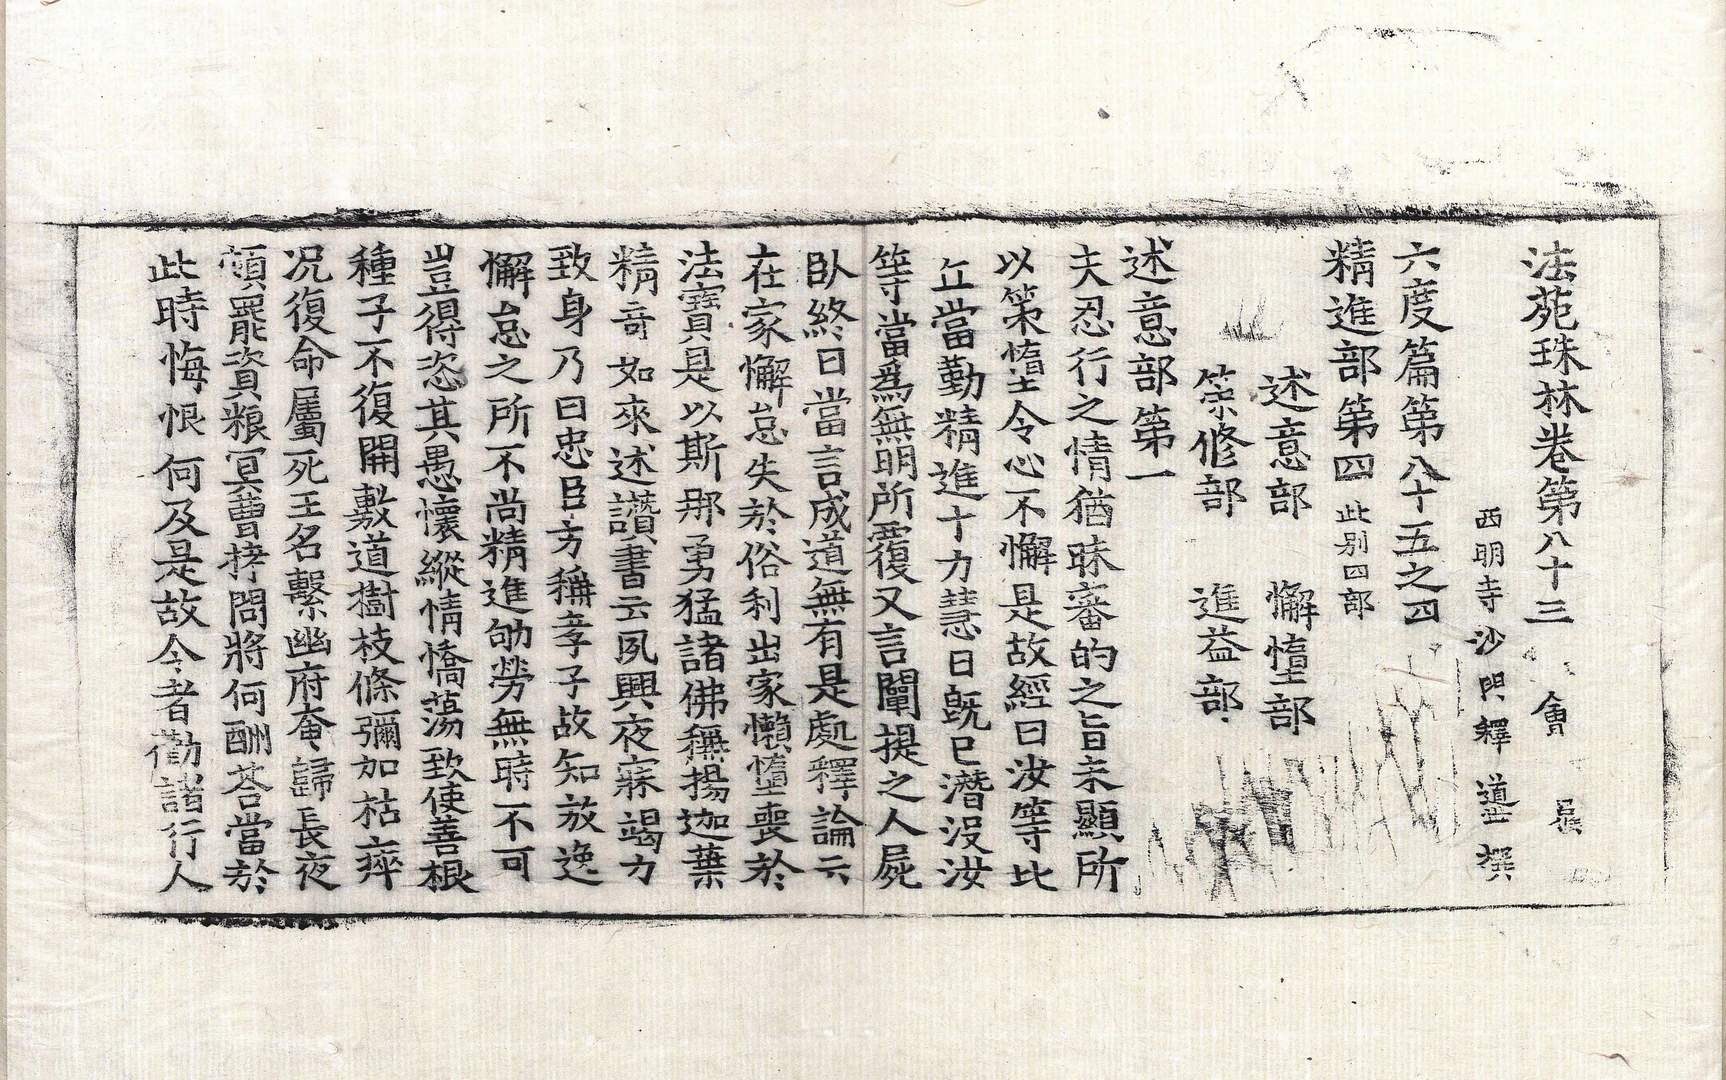 法苑珠林卷第八十三 會
西明寺沙門釋道世撰
六度篇第八十五之四
精進部第四 此別四部
述意部 懈墮部
策修部 進益部
述意部第一
夫忍行之情猶昧審的之旨未顯所
以策墮令心不懈是故經曰汝等比
丘當勤精進十力慧日旣已潛沒汝
等當爲無明所覆又言闡提之人屍
臥終日當言成道無有是處釋論云
在家懈怠失於俗利出家懶墮喪於
法寶是以斯那勇猛諸佛稱揚迦葉
精奇如來述讚書云夙興夜寐竭力
致身乃曰忠臣方稱孝子故知放逸
懈怠之所不尚精進劬勞無時不可
豈得恣其愚懷縱情憍蕩致使善根
種子不復開敷道樹枝條彌加枯瘁
况復命屬死王名繫幽府奄歸長夜
頓罷資粮冥曹拷問將何酬荅當於
此時悔恨何及是故今者勸諸行人